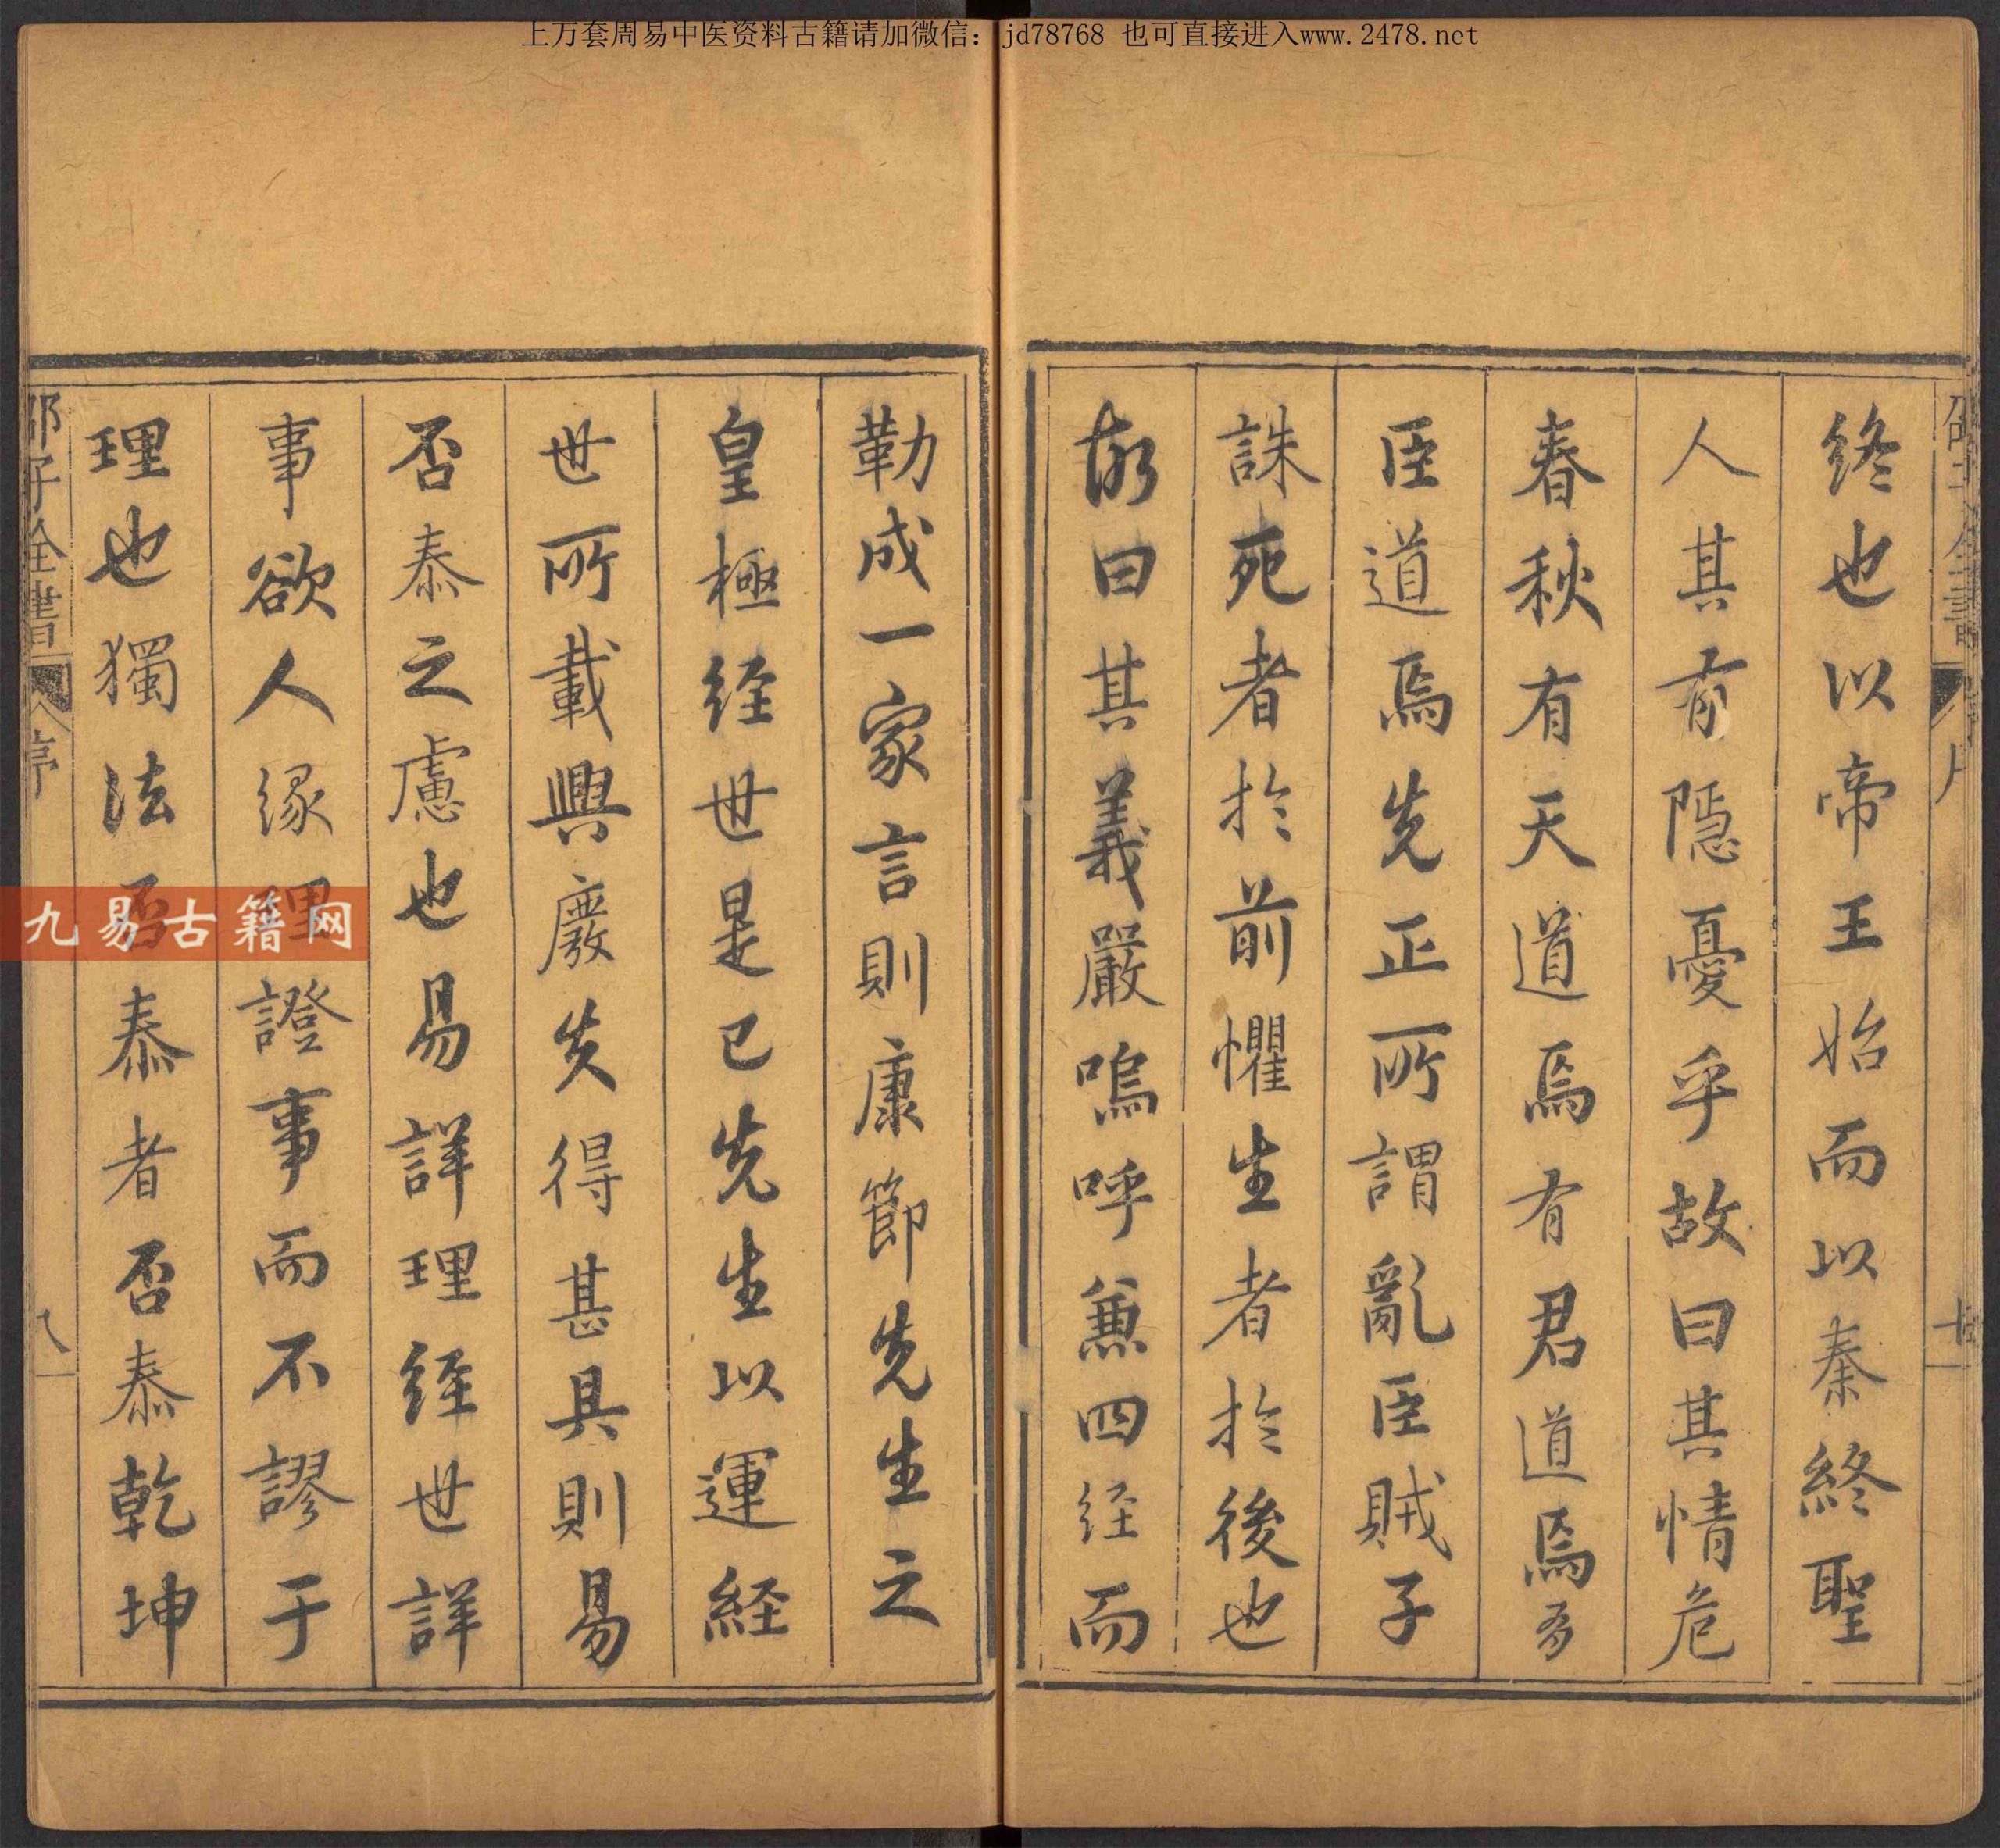 上万套周易中医资料古籍请加微信：jd78768 也可直接进入www.2478.net
終也以帝王始而以秦終聖
人其有隱憂乎故曰其情危
春秋有天道焉有君道焉有
臣道焉先正所謂亂臣賊子
誅死者於前懼生者於後也
故曰其義嚴嗚呼兼四経而
勒成一家言則康節先生之
皇極経世是已先生以運経
世所載興廢失得甚具則易
否泰之慮也易詳理経世詳
事欲人緣理證事而不謬于
理也獨法否泰者否泰乾坤
邵子全書
序
八
九易古籍网